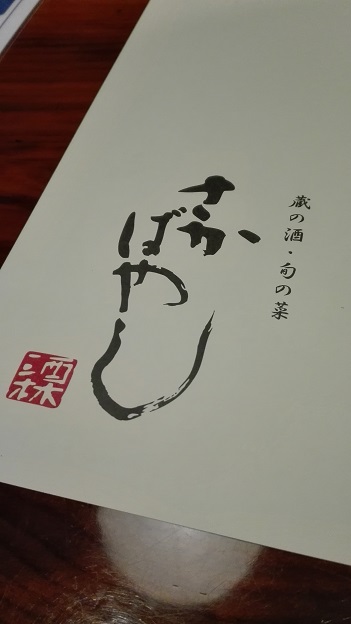 蔵の酒・旬の菜
さか
ばやし
酒林